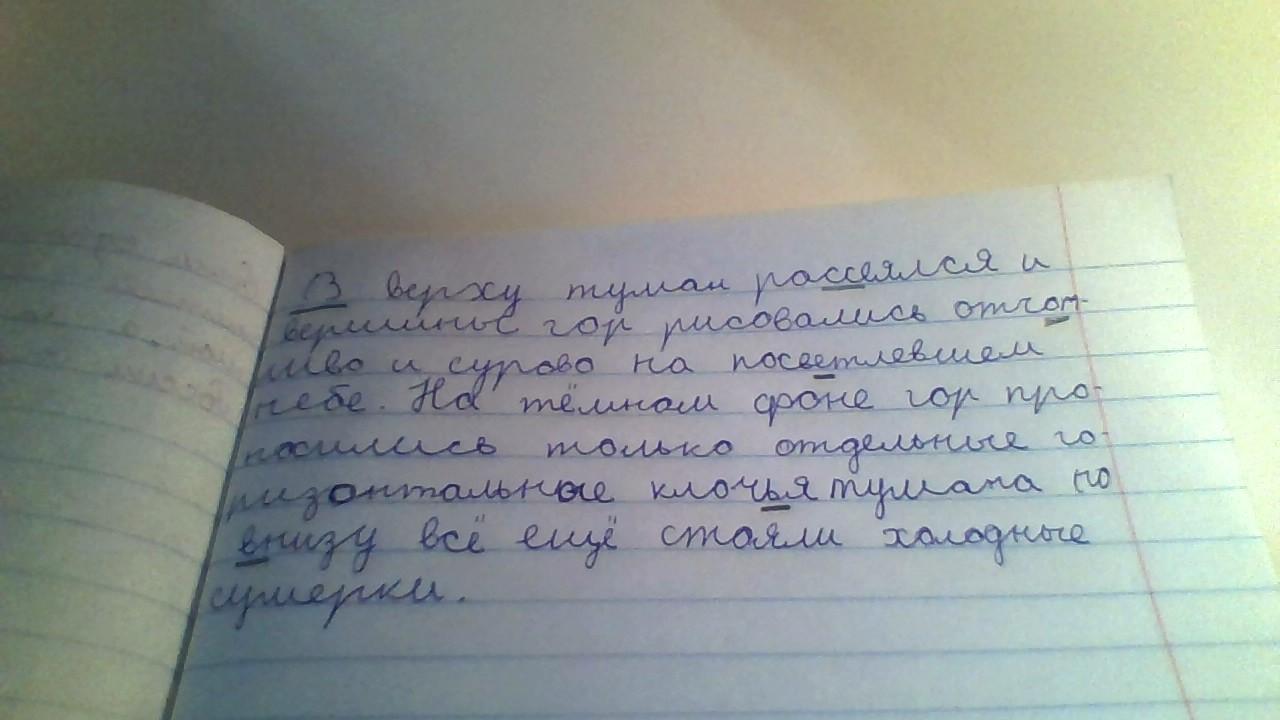 В верху туман рассеялся и
вершины гор рисовались отчёт-
ливо и сурово на посветлевшем
небе. На тёмном фоне гор про-
носились только отдельные го-
ризонтальные клочья тумана но
внизу всё ещё стояли холодные
сумерки.